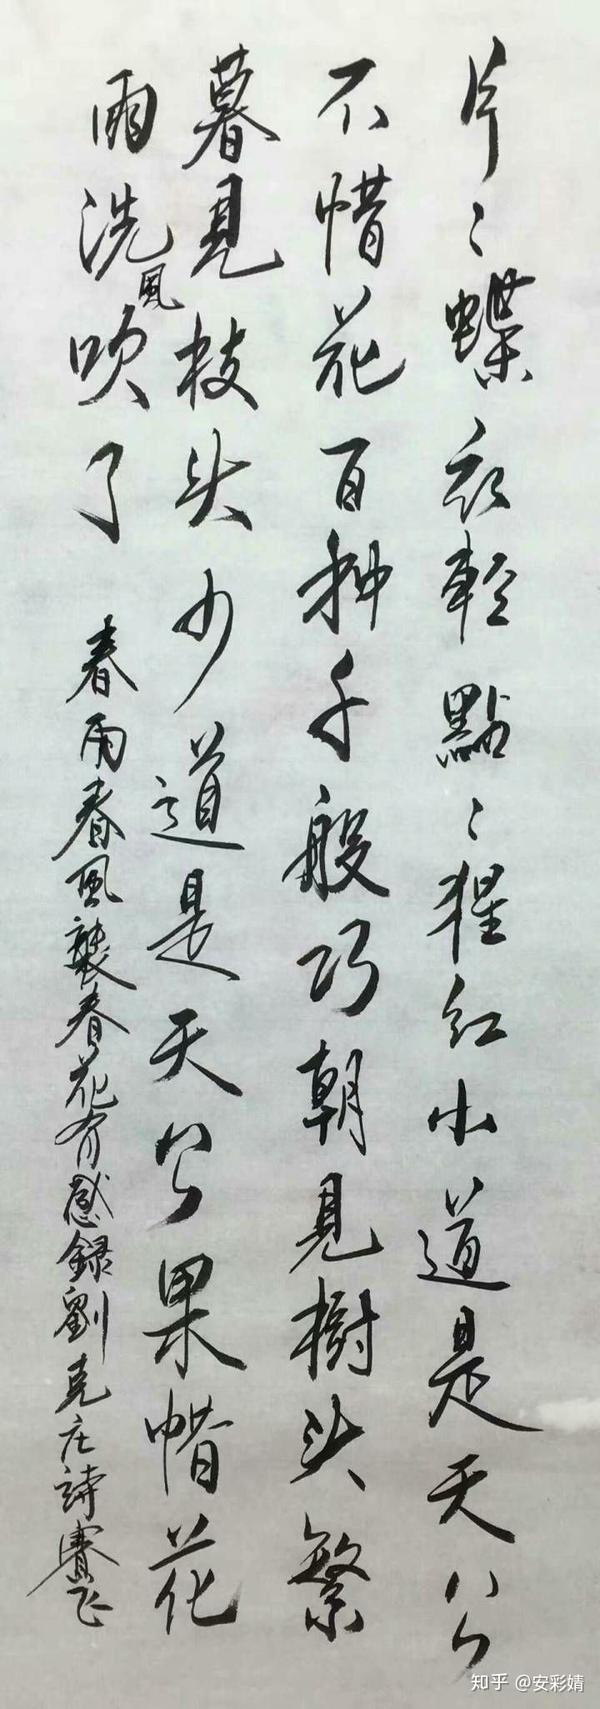 片〻蝶衣輕點〻猩红小道是天公
不惜花百种千般巧朝見樹头繁
暮見枝头少道是天公果惜花
雨洗風吹了
春雨春風襲春花有感録劉克庄詩賽飞
知乎 @安彩婧